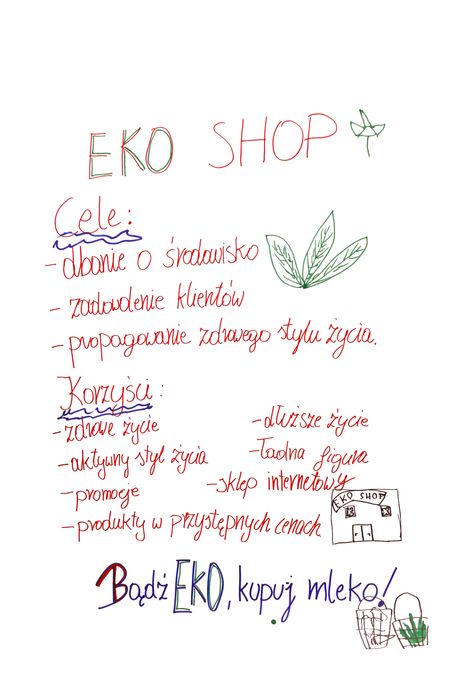 EKO SHOP
Cele:
- dbanie o środowisko
- zadowolenie klientów
- propagowanie zdrowego stylu życia.
Korzyści:
- zdrowe życie
- dłuższe życie
- aktywny styl życia
- ładna figura
- promocje
- sklep internetowy
EKO SHOP
- produkty w przystępnych cenach
Bądź EKO, kupuj mleko!